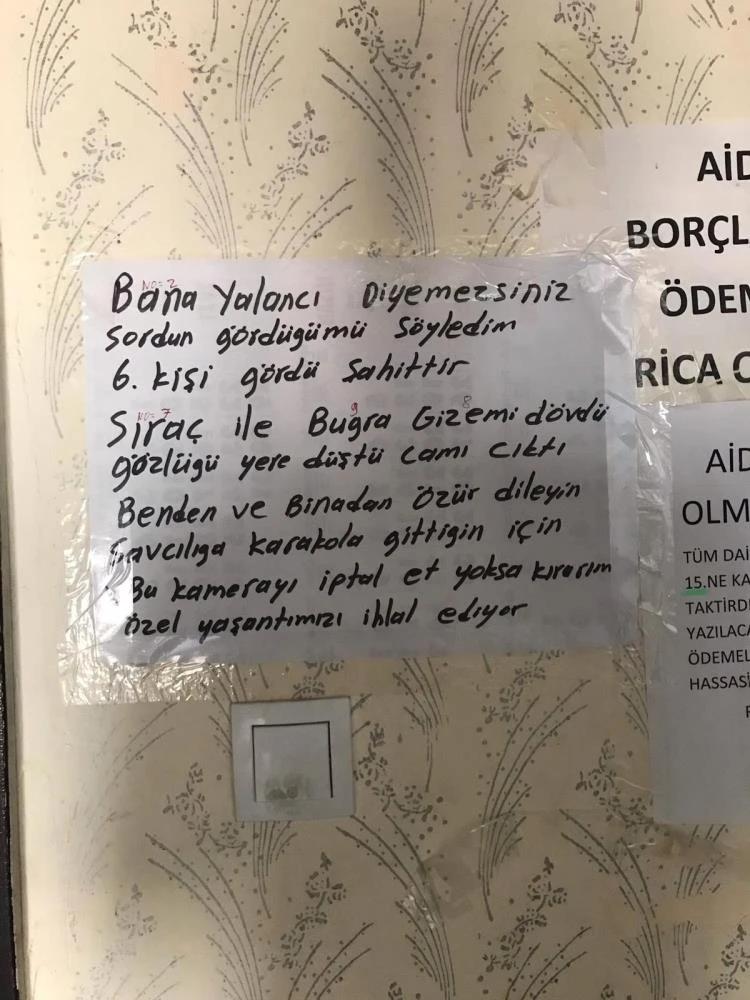 NO=2
Bana Yalancı Diyemezsiniz
sordun gördügümü söyledim
6. kişi gördü şahittir
NO=7 9 8
Sıraç ile Buğra Gizemi dövdü
gözlügü yere düştü camı cıktı
Benden ve Binadan özür dileyin
Savcılıga karakola gittigin için
Bu kamerayı iptal et yoksa kırarım
özel yaşantımızı ihlal ediyor
AİD
BORÇL
ÖDEM
RİCA O
AİD
OLM
TÜM DAİ
15.NE KA
TAKTİRDE
YAZILACA
ÖDEMEL
HASSASİ